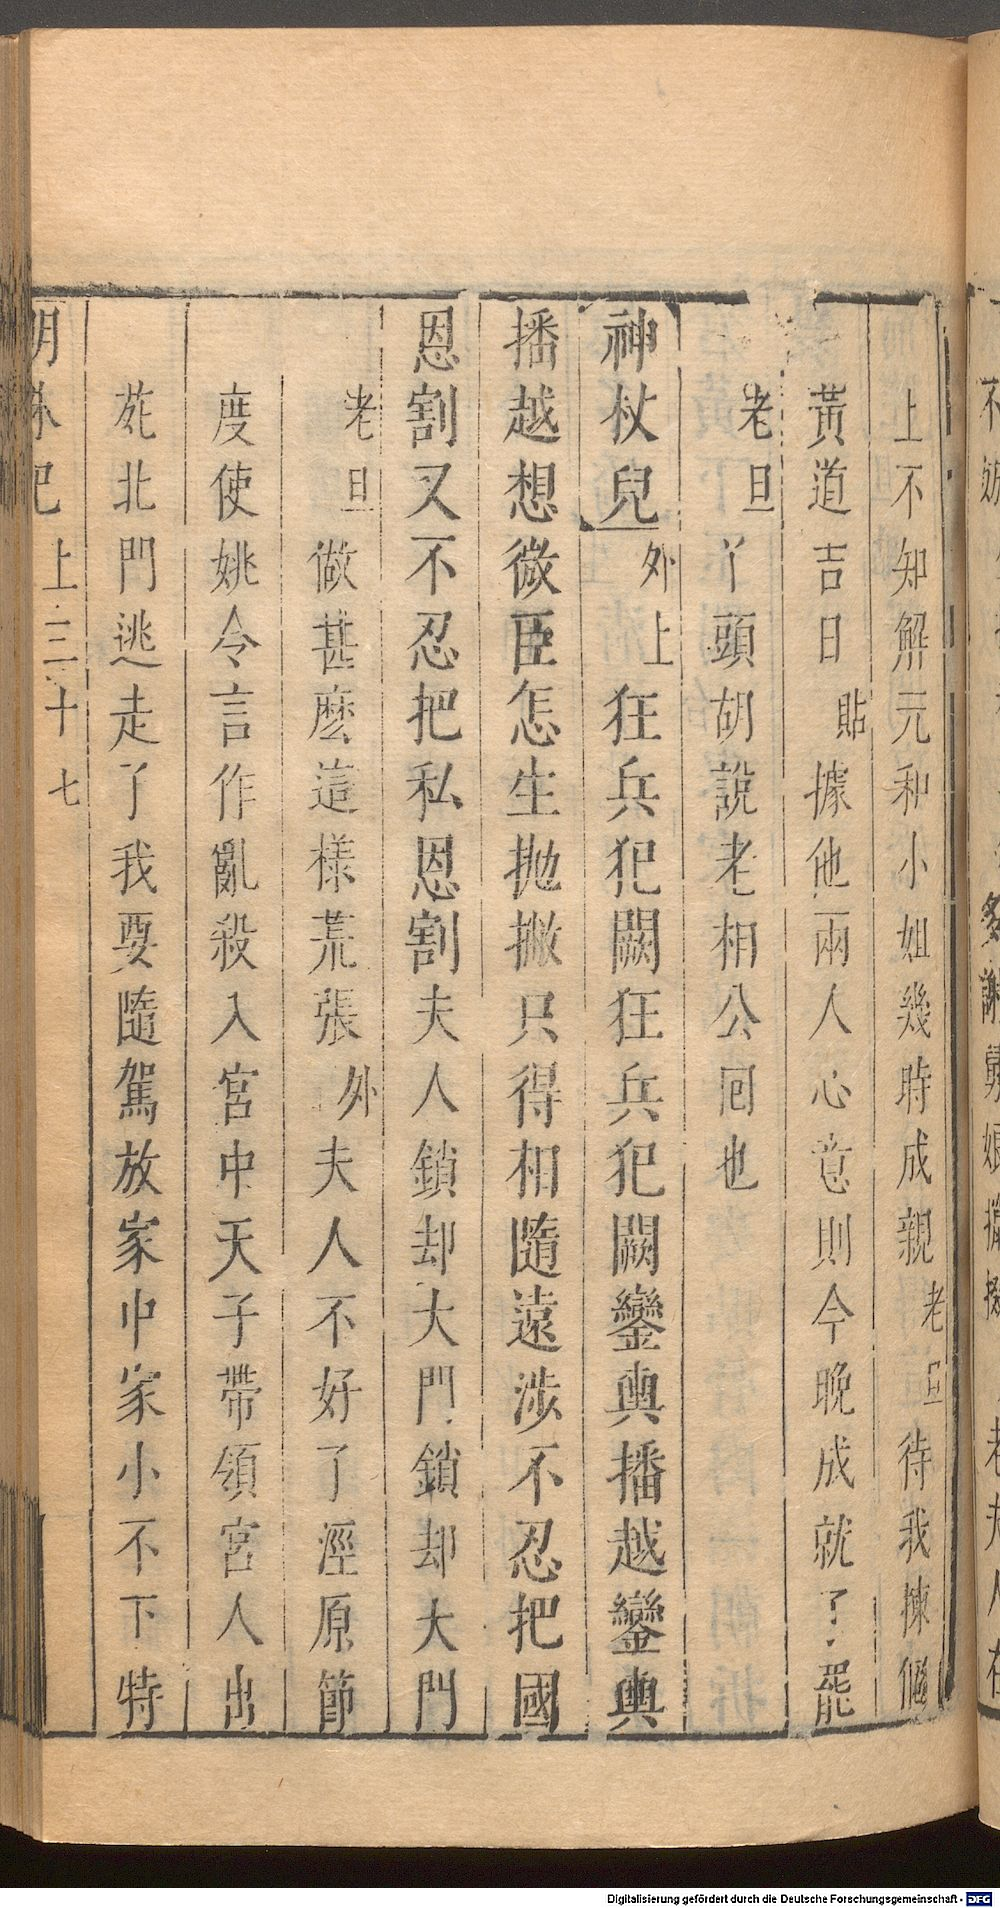 上不知解元和小姐幾時成親老旦待我揀個
黃道吉日貼據他兩人心意則今晚成就了罷
老旦丫頭胡說老相公囘也
神杖兒外上狂兵犯闕狂兵犯闕鑾輿播越鑾輿
播越想微臣怎生拋撇只得相隨遠涉不忍把國
恩割又不忍把私恩割夫人鎖却大門鎖却大門
老旦做甚麽這樣荒張外夫人不好了涇原節
度使姚令言作亂殺入宮中天子帶領宮人出
苑北門逃走了我要隨駕放家中家小不下特
明珠記 上 三十七
Digitalisierung gefördert durch die Deutsche Forschungsgemeinschaft - DFG